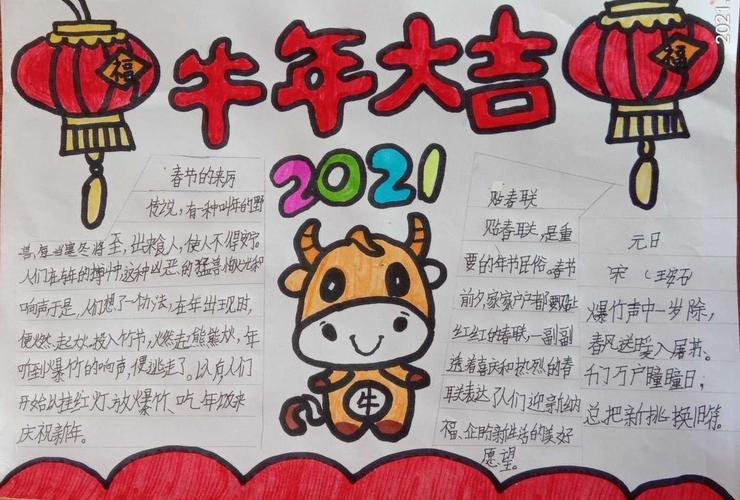 牛年大吉
2021
福
福
2021.
春节的来历
传说,有一种叫年的野
兽,每当寒冬将至,出来食人,使人不得安宁。
人们在年的搏斗中,这种凶恶的猛兽怕火光和
响声于是,人们想了一个办法,在年出现时,
便燃起火,投入竹节,燃起熊熊火,年
听到爆竹的响声,便逃走了。以后人们
开始以挂红灯.放爆竹、吃年饭来
庆祝新年。
贴春联
贴春联,是重
要的年节民俗。春节
前夕,家家户户都要贴上
红红的春联,一副副
透着喜庆和热烈的春
联表达了人们迎新纳
福、企盼新生活的美好
愿望。
元日
宋(王安石
爆竹声中一岁除,
春风送暖入屠苏。
千门万户曈曈日,
总把新桃换旧符。
牛